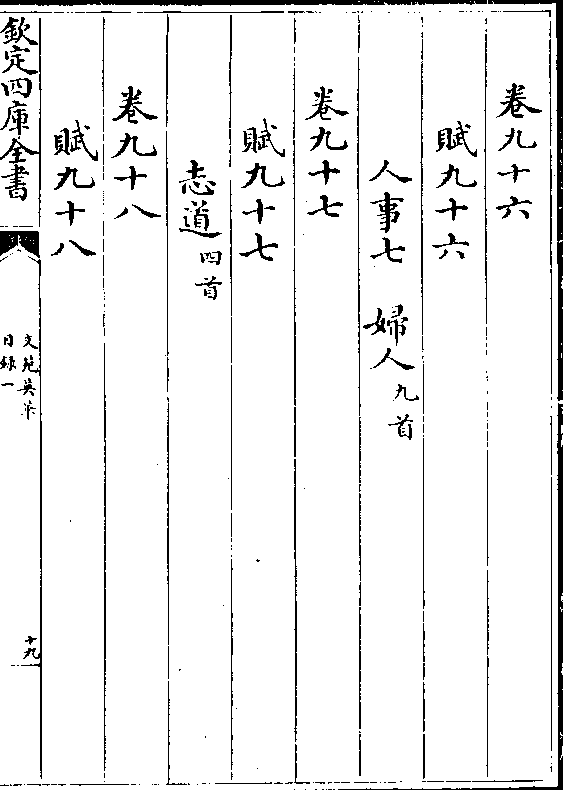 卷九十六
賦九十六
人事七 婦人九首
卷九十七
賦九十七
志道四首
卷九十八
賦九十八
欽定四庫全書
文苑英華
目錄一
十九